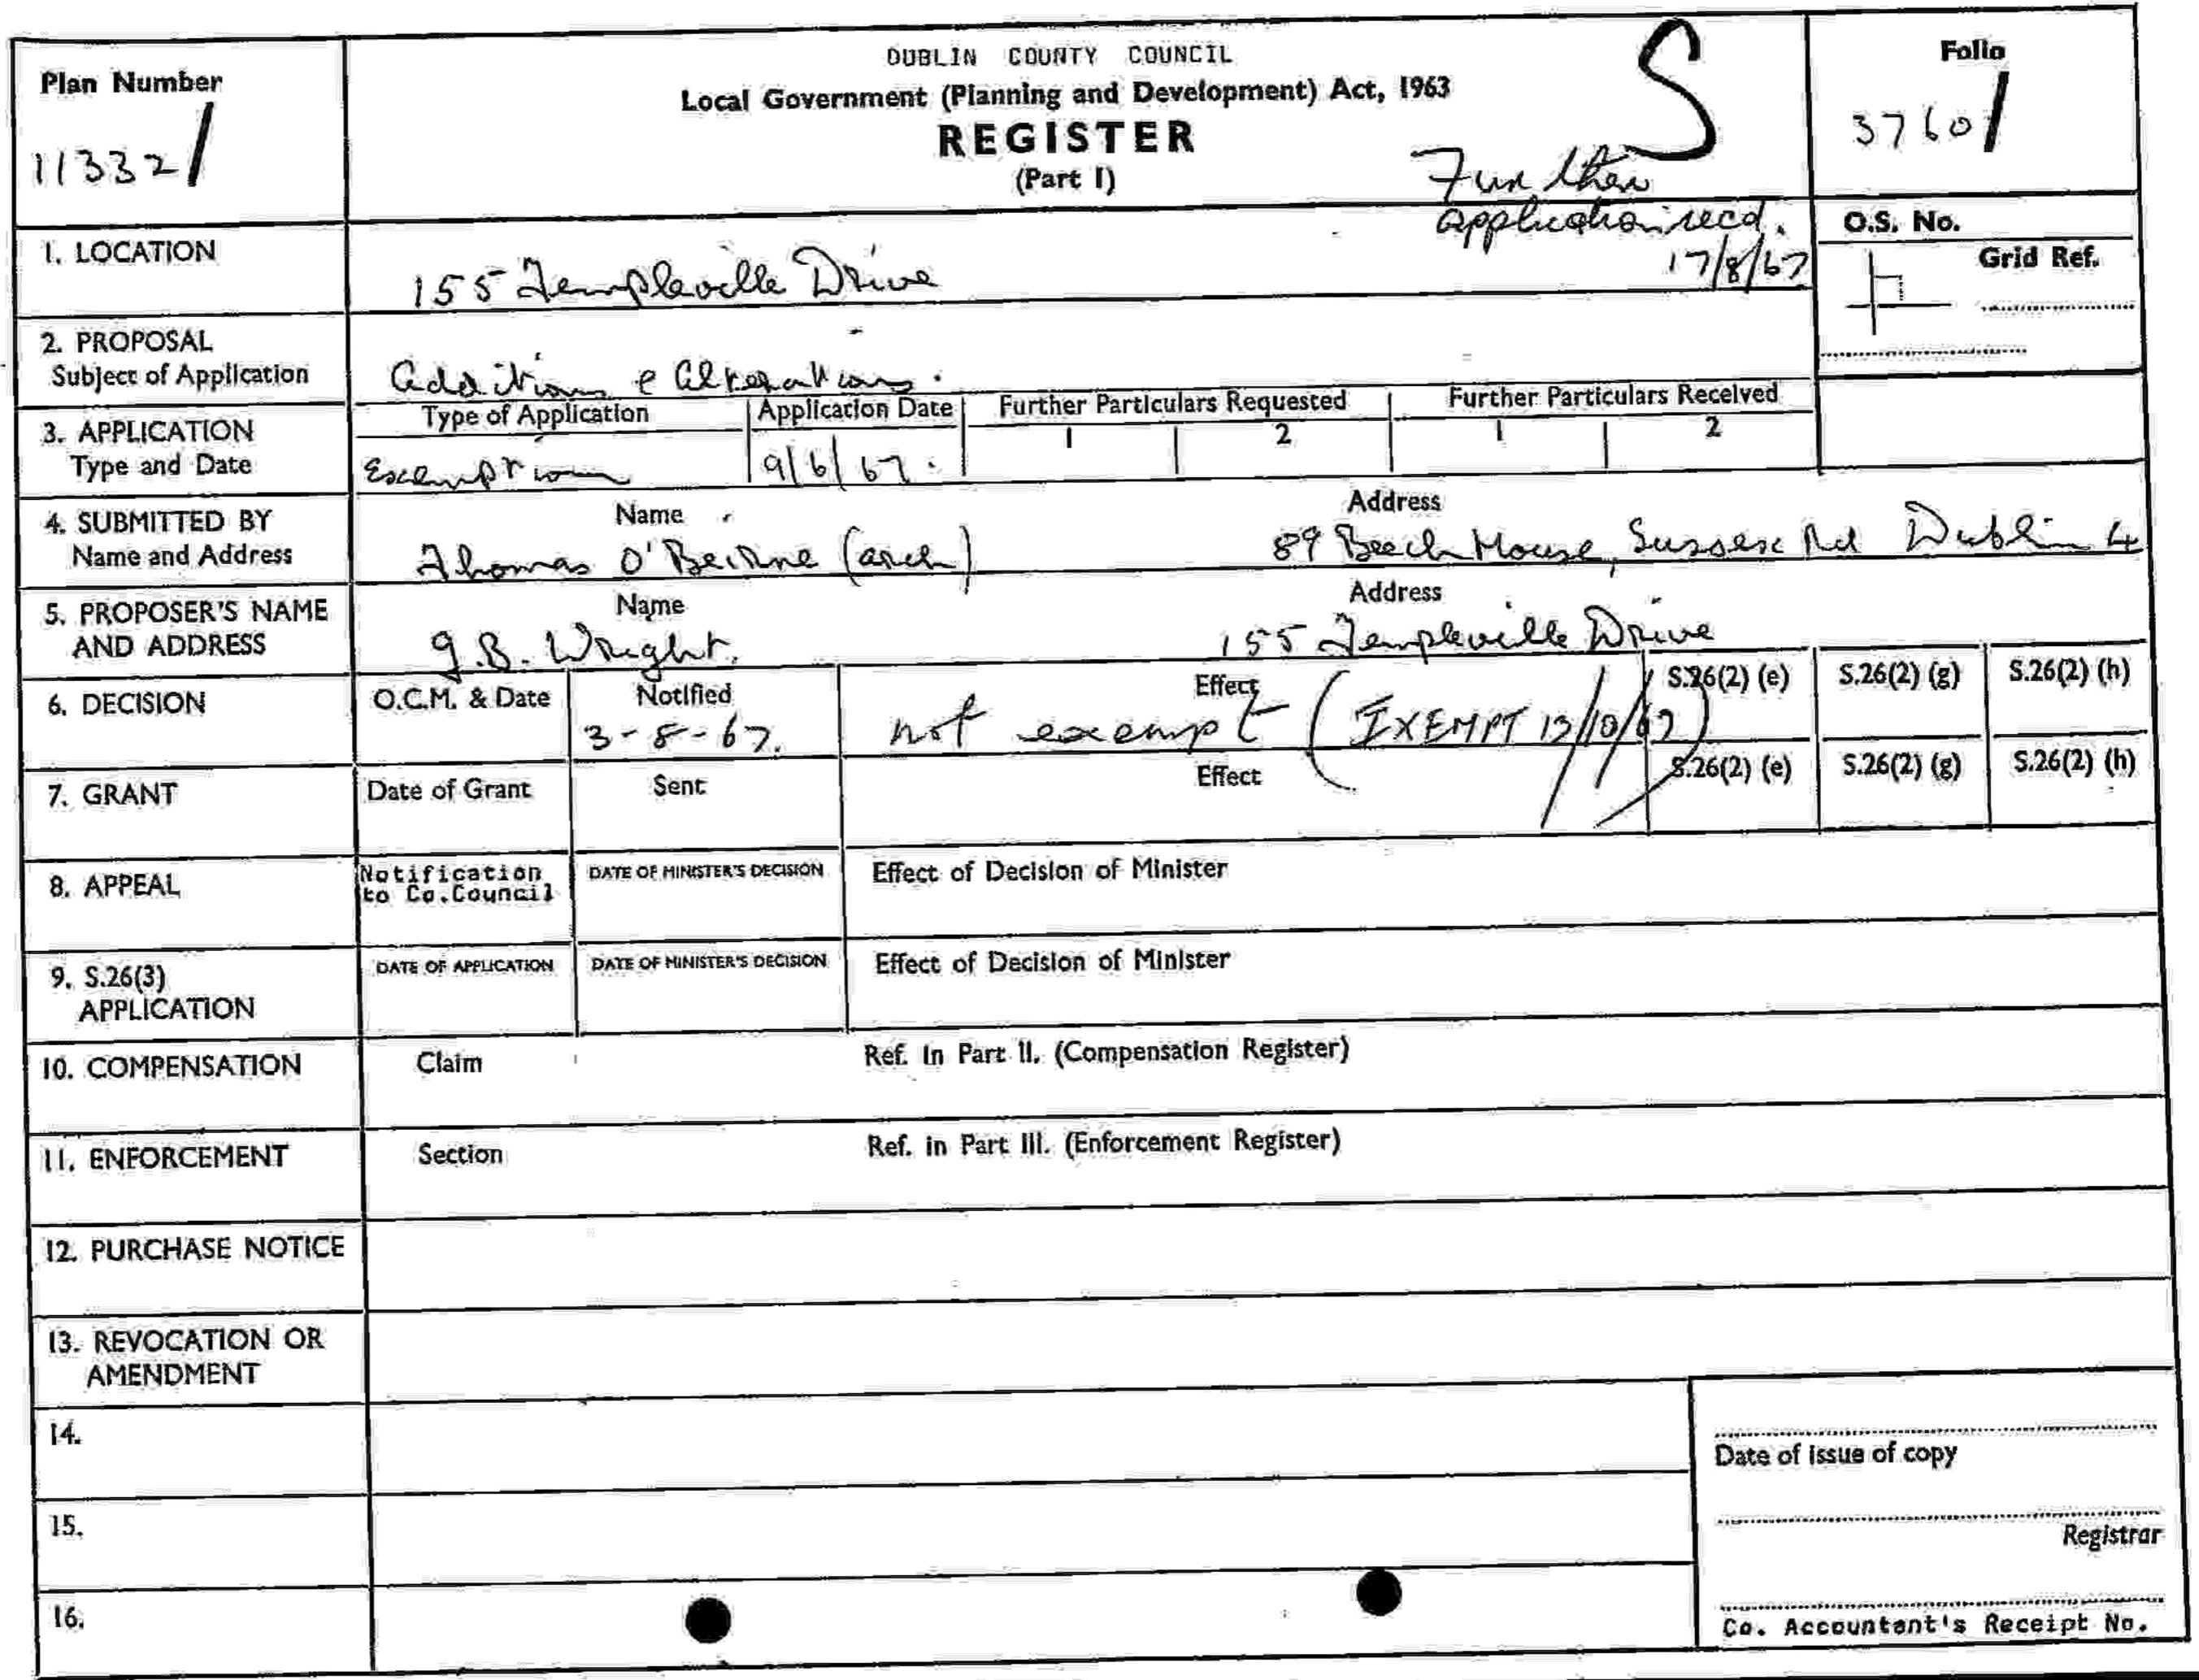 DUBLIN COUNTY COUNCIL
Local Government (Planning and Development) Act, 1963
REGISTER
(Part I)
S
Plan Number
11332/
Folio
3760/
Further
application recd.
17/8/67
O.S. No.
Grid Ref.
1. LOCATION
155 Templeville Drive
2. PROPOSAL
Subject of Application
Additions & Alterations.
3. APPLICATION
Type and Date
Type of Application
Exemption
Application Date
9/6/67.
Further Particulars Requested
1 2
Further Particulars Received
1 2
4. SUBMITTED BY
Name and Address
Name
Thomas O'Beirne (arch)
Address
89 Beech House, Sussex Rd Dublin 4
5. PROPOSER'S NAME
AND ADDRESS
Name
G.B. Wright.
Address
155 Templeville Drive
6. DECISION
O.C.M. & Date
Notified
3-8-67.
Effect
not exempt (EXEMPT 13/10/67)
S.26(2) (e) S.26(2) (g) S.26(2) (h)
7. GRANT
Date of Grant
Sent
Effect
S.26(2) (e) S.26(2) (g) S.26(2) (h)
8. APPEAL
Notification
to Co.Council
DATE OF MINISTER'S DECISION
Effect of Decision of Minister
9. S.26(3)
APPLICATION
DATE OF APPLICATION
DATE OF MINISTER'S DECISION
Effect of Decision of Minister
10. COMPENSATION
Claim
Ref. in Part II. (Compensation Register)
11. ENFORCEMENT
Section
Ref. in Part III. (Enforcement Register)
12. PURCHASE NOTICE
13. REVOCATION OR
AMENDMENT
14.
15.
16.
Date of issue of copy
Registrar
Co. Accountant's Receipt No.